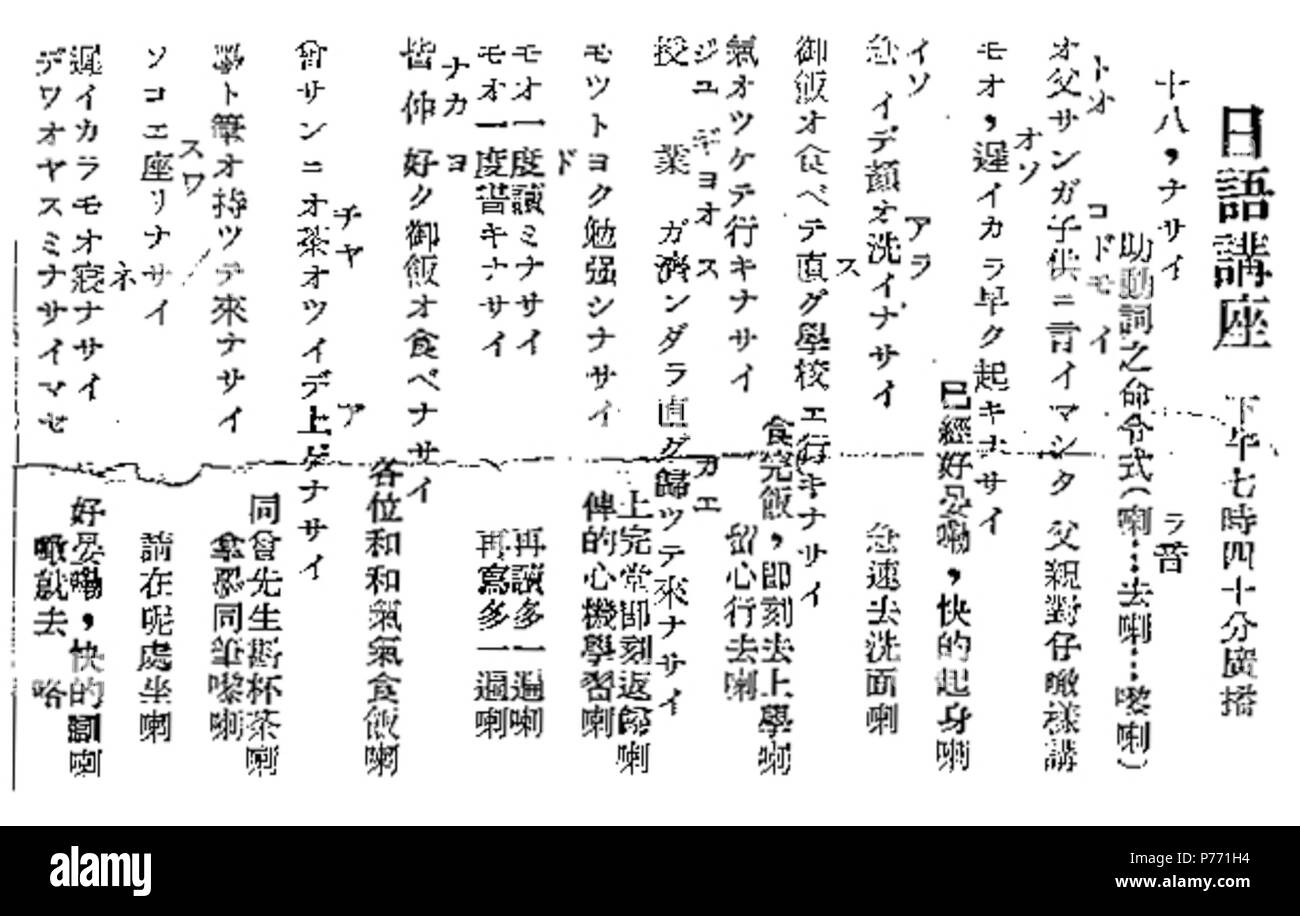 日語講座 下午七時四十分廣播
十八，ナサイ ラ音
助動詞之命令式（喇…去喇…嚟喇）
オ父サンガ子供ニ言イマシタ 父親對仔噉樣講
トオ コドモ イ
モオ，遲イカラ早ク起キナサイ 已經好晏嘞，快的起身喇
オソ
急イデ顏オ洗イナサイ 急速去洗面喇
イソ アラ
御飯オ食ベテ直グ學校エ行キナサイ 食完飯，即刻去上學喇
ス
氣オツケテ行キナサイ 留心行去喇
授業ガ濟ンダラ直グ歸ツテ來ナサイ 上完堂即刻返歸喇
ジユギヨオ ス カエ
モツトヨク勉强シナサイ 俾的心機學習喇
モオ一度讀ミナサイ 再讀多一遍喇
ド
モオ一度書キナサイ 再寫多一遍喇
皆仲好ク御飯オ食ベナサイ 各位和和氣氣食飯喇
ナカヨ
曾サンニオ茶オツイデ上ゲナサイ 同曾先生斟杯茶喇
チヤ ア
墨ト筆オ持ツテ來ナサイ 拿墨同筆嚟喇
ソコエ座リナサイ 請在呢處坐喇
スワ
遲イカラモオ寢ナサイ 好晏嘞，快的瞓喇
ネ
デワオヤスミナサイマセ 噉就去
alamy
Image ID: P771H4
www.alamy.com